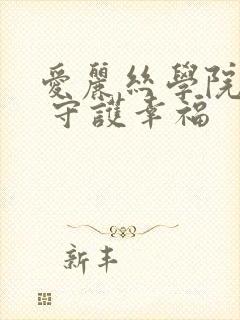 愛麗絲學院
守護幸福
新丰